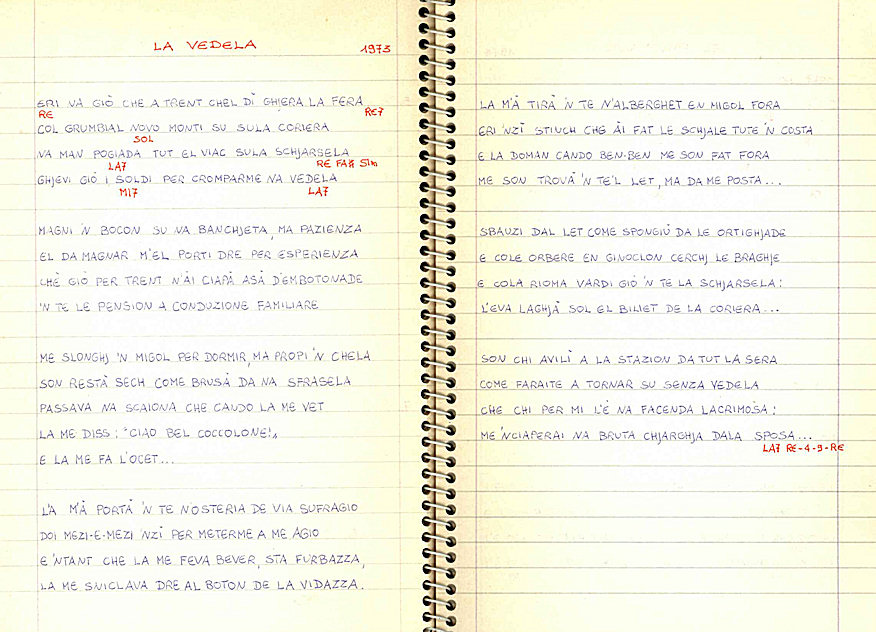 LA VEDELA 1973
ERI VÀ GIÒ CHE A TRENT CHEL DÌ GHJERA LA FERA
RE RE7
COL GRUMBIAL NOVO MONTI SU SULA CORIERA
SOL
NA MAN POGIADA TUT EL VIAC SULA SCHJARSELA
LA7 RE FA# SIm
GHJEVI GIÒ I SOLDI PER CROMPARME NA VEDELA
MI7 LA7
MAGNI 'N BOCON SU NA BANCHJETA, MA PAZIENZA
EL DA MAGNAR M'EL PORTI DRE PER ESPERIENZA
CHÈ GIÒ PER TRENT N'ÀI CIAPÀ ASÀ D'EMBOTONADE
'N TE LE PENSION A CONDUZIONE FAMILIARE
ME SLONGHJ 'N MIGOL PER DORMIR, MA PROPI 'N CHELA
SON RESTÀ SECH COME BRUSÀ DA NA SFRASELA
PASSAVA NA SCAIONA CHE CANDO LA ME VET
LA ME DISS: "CIAO BEL COCCOLONE!"
E LA ME FA L'OCET...
L'A M'À PORTÀ 'N TE N'OSTERIA DE VIA SUFRAGIO
DOI MEZI-E-MEZI 'NZÌ PER METERME A ME AGIO
E 'NTANT CHE LA ME FEVA BEVER, STA FURBAZZA,
LA ME SNICLAVA DRE AL BOTON DE LA VIDAZZA.
LA M'À TIRÀ 'N TE N'ALBERGHET EN MIGOL FORA
ERI 'NZÌ STIUCH CHE ÀI FAT LE SCHJALE TUTE 'N COSTA
E LA DOMAN CANDO BEN-BEN ME SON FAT FORA
ME SON TROVÀ 'N TE'L LET, MA DA ME POSTA...
SBAUZI DAL LET COME SPONGIÙ DA LE ORTIGHJADE
E COLE ORBERE EN GINOCLON CERCHJ LE BRAGHJE
E COLA RIOMA VARDI GIÒ 'N TE LA SCHJARSELA:
L'EVA LAGHJÀ SOL EL BILIET DE LA CORIERA...
SON CHI AVILÌ A LA STAZION DA TUT LA SERA
COME FARAITE A TORNAR SU SENZA VEDELA
CHE CHI PER MI L'È NA FACENDA LACRIMOSA:
ME 'NCIAPERAI NA BRUTA CHJARGHJA DALA SPOSA...
LA7 RE-4-9-RE